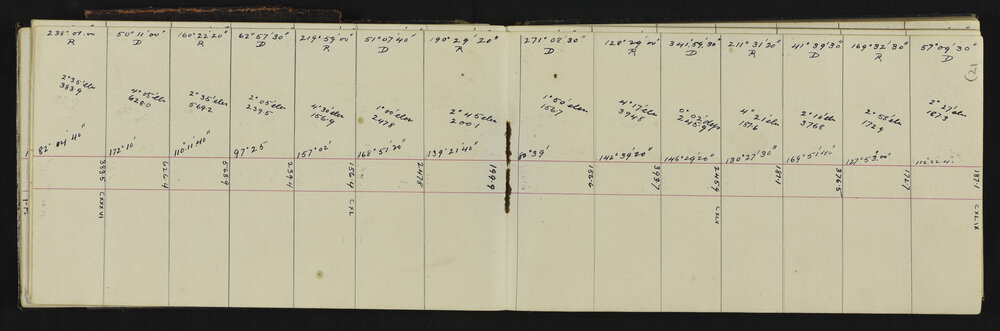 238° 01' 00"
R
2° 35' elev
383.9
82° 04' 40"
383.5
CXXXVI
50° 11' 00"
D
4° 05' elev
628.0
172° 10'
626.4
160° 22' 20"
R
2° 35' elev
569.2
110° 11' 40"
568.9
62° 57' 30"
D
2° 05' elev
239.5
97° 25
239.4
219° 59' 00"
R
4° 30' elev
156.9
157° 02'
156.4
CXL
51° 07' 40"
D
1° 00' elev
247.8
168° 51' 20"
247.8
190° 29' 20"
R
2° 45 elev
200.1
139° 21' 40"
199.9
271° 08' 30"
D
1° 50' elev
156.7
80° 39'
156.6
128° 29' 00"
R
4° 17' elev
394.8
142° 39' 20"
393.7
341° 59' 30"
D
0° 02' dep
245.9
146° 29' 20"
245.9
CXLIX
211° 31' 20"
R
4° 21' elev
187.6
130° 27' 30"
187.1
41° 39' 30"
D
2° 10' elev
376.8
169° 51' 40"
376.5
169° 32' 30"
R
2° 58' elev
172.9
127° 53' 00"
172.7
57° 09' 30"
D
2° 27' elev
187.3
187.1
CXLIX
(21